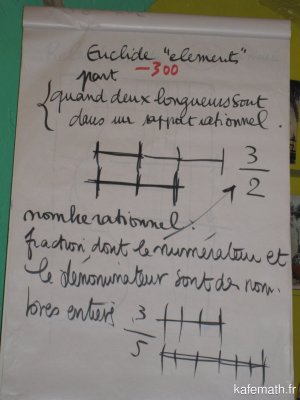 Euclide "elements"
part -300
quand deux longueurs sont
dans un rapport rationnel.
3
2
nombre rationnel :
fraction dont le numérateur et
le dénominateur sont des nom.
bres entiers 3
5
kafemath.fr